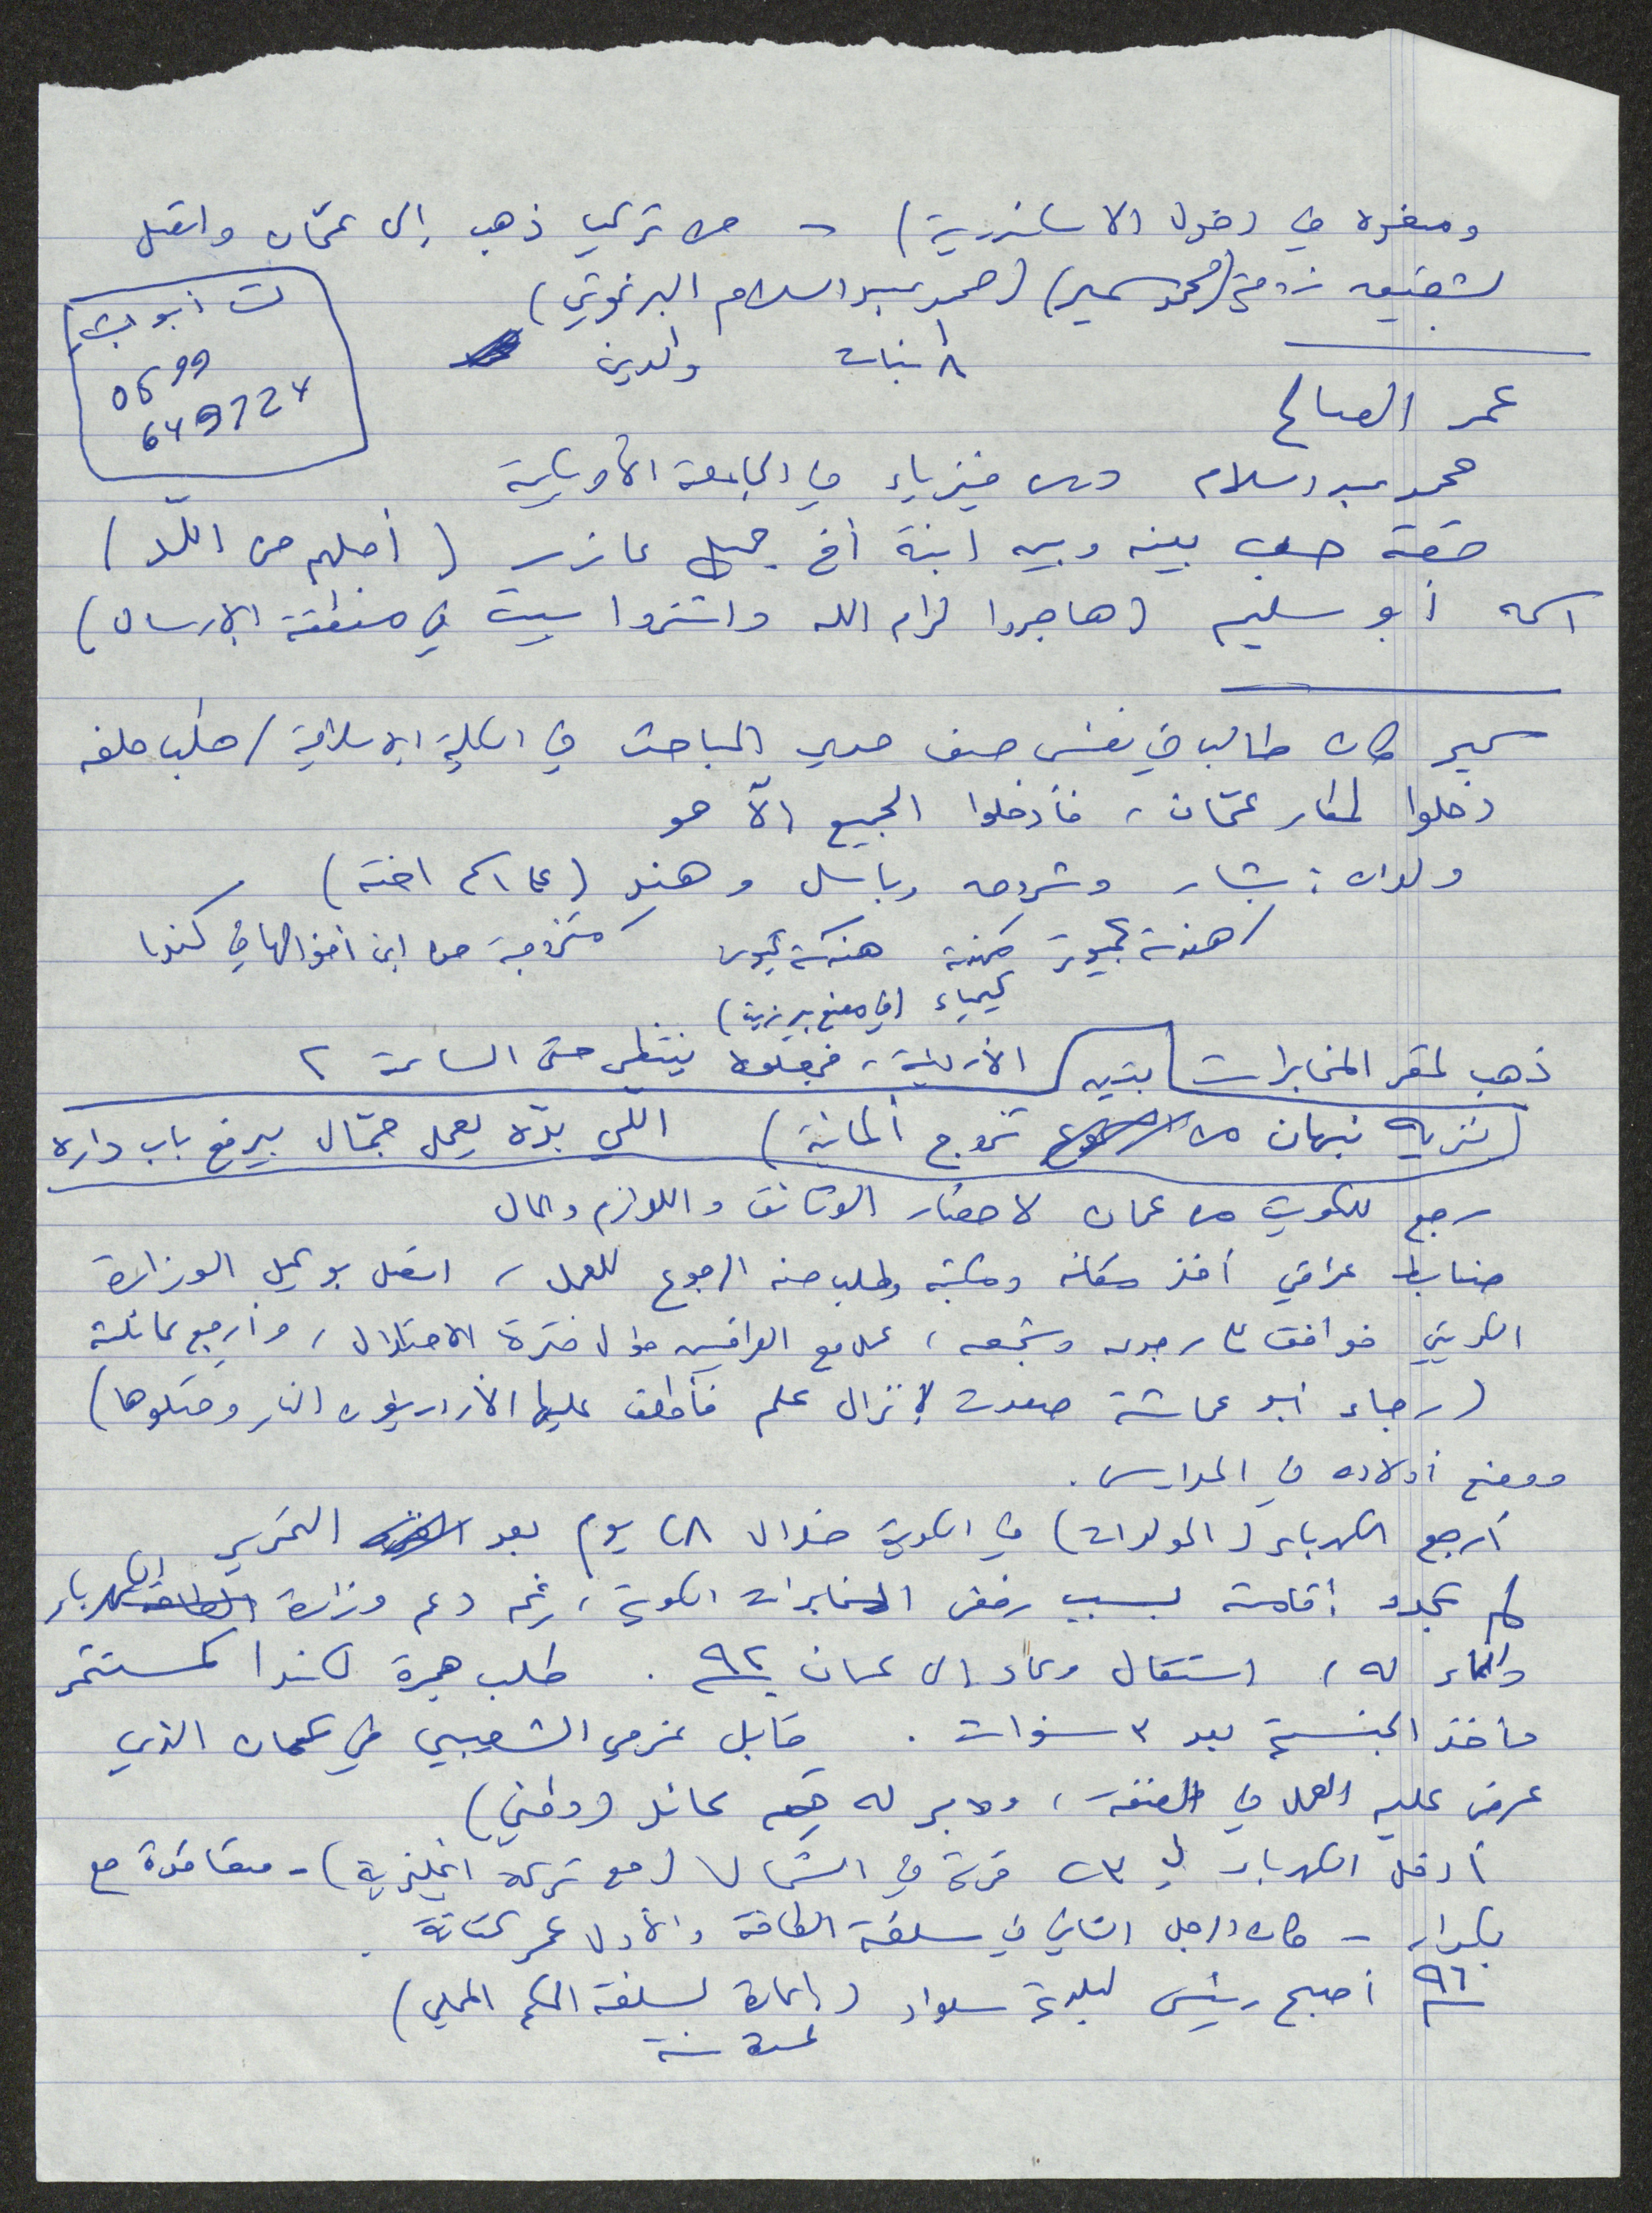 ومنعوه من دخول الاسكندرية) - من تركيا ذهب إلى عمّان واتصل
لشقيق زوجته (محمد سمير) (محمد عبد السلام البرغوثي)
ت أبو
0599
649724
٨ بنات والدين
عمر الصالح
محمد عبد السلام درس فيزياء في الجامعة الأمريكية
قصة حب بينه وبين ابنة أخ جميل عازر (أصلهم من اللّد)
اسمه أبو سليم (هاجروا لرام الله واشتروا بيت في منطقة الارسال)
سمير كان طالب في نفس صف مدير المباحث في الكلية الإسلامية / طلب ملفه
دخلوا لمطار عمّان، فأدخلوا الجميع إلّا هو
ولدان: بشار وشروق وباسل وهند (على اسم اخته)
هندسة كمبيوتر مهندسة هندسة كمبيوتر متزوجة من ابن أخوالها في كندا
كيمياء (في مصنع بيرزيت)
ذهب لمقر المخابرات الأردنية، فجعلوه ينتظر حتى الساعة ٢
(نزيه نبهان من تزوج ألمانية) اللّي بدّه يعمل جمّال بيرفع باب داره
رجع للكويت من عمان لاحضار الوثائق واللوازم والمال
ضابط عراقي أخذ مكانه ومكتبه وطلب منه الرجوع للعمل، اتصل بوكيل الوزارة
الكويتي فوافق على رجوعه وشجعه، عمل مع العراقيين طول فترة الاحتلال، وأرجع عائلته
(رجاء أبو عماشة صعدت لإنزال علم فأطلق عليها الأردنيون النار وقتلوها)
ووضع أولاده في المدارس.
أرجع الكهرباء (المولدات) في الكويت خلال ٢٨ يوم بعد التحرير
لم تجدد اقامته بسبب رفض المخابرات الكويتية، رغم دعم وزارة الكهرباء
والماء له، استقال وعاد إلى عمان ٩٢. طلب هجرة لكندا كمستثمر
وأخذ الجنسية بعد ٣ سنوات. قابل عزمي الشعيبي في عمان الذي
عرض عليه العمل في الضفة، ودبر له عائد (وطني)
أدخل الكهرباء لـ ٣٢ قرية في الشمال (مع شركة انجليزية) - متعاقدة مع
بكدار - كان الرجل الثاني في سلطة الطاقة والأول عمر كتانة.
٩٦ أصبح رئيس لبلدية سلواد (إعارة لسلطة الحكم المحلي)
لمدة سنة